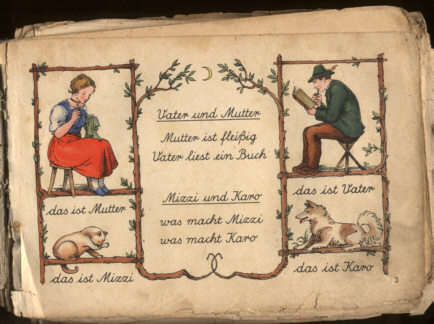 Vater und Mutter
Mutter ist fleißig
Vater liest ein Buch
Mizzi und Karo
was macht Mizzi
was macht Karo
das ist Mutter
das ist Mizzi
das ist Vater
das ist Karo
3